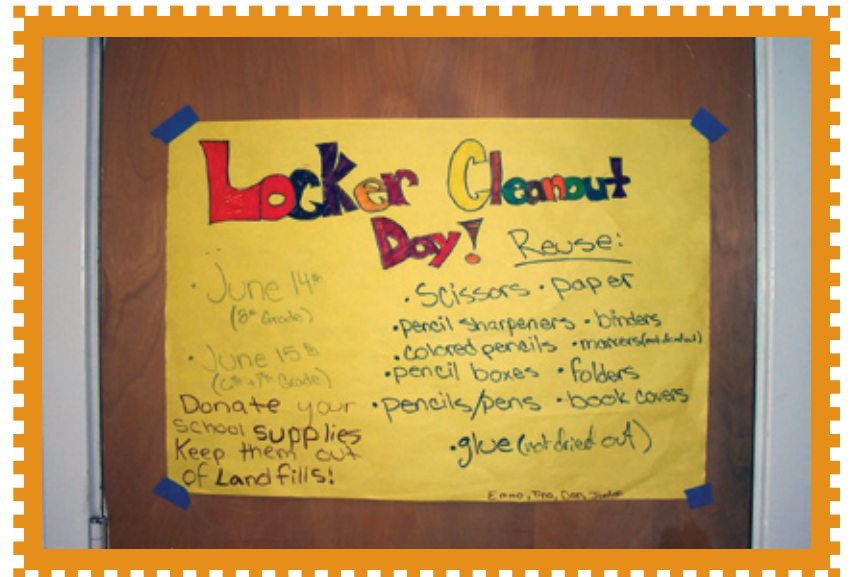 Locker Cleanout
Day!
· June 14th
(8th Grade)
· June 15th
(6th + 7th Grade)
Donate your
school supplies
Keep them out
of Landfills!
Reuse:
· Scissors · paper
· pencil sharpeners · binders
· colored pencils · markers (not dried out)
· pencil boxes · folders
· pencils/pens · book covers
· glue (not dried out)
Emma, Tina, Dan,